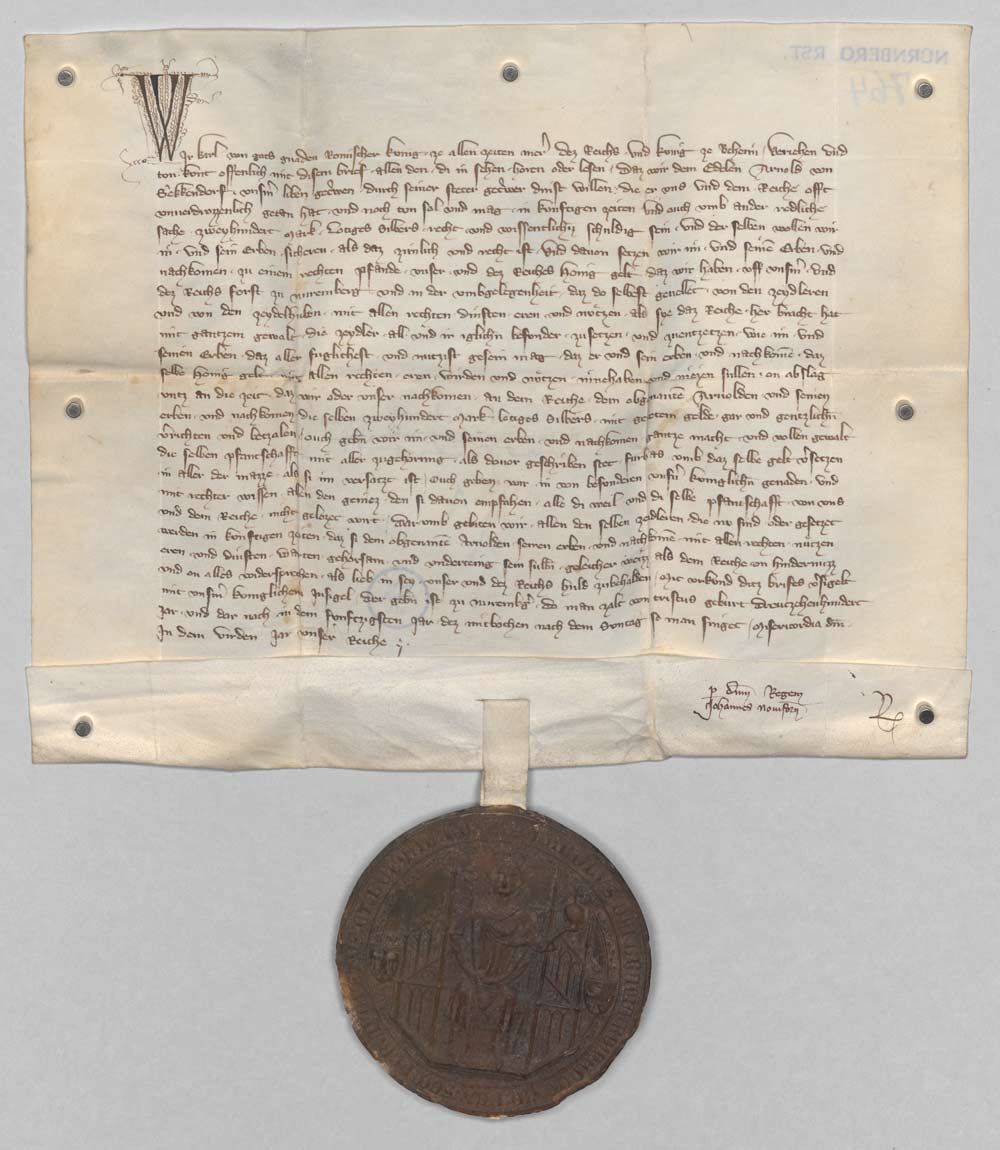 Wir karl von gots gnaden Romischer kong ze allen zeiten merer dez Reichs und kong ze Behem veriehen und
ton kont offenlich mit disem brief allen den di in sehen horen oder lesen Daz wir dem Edelen Arnold von
Sekkendorf unserm liben getrewen durch seiner steter getrewer dinst willen die er uns und dem Reiche offt
unverdrozzenlich getan hat und noch ton sol und mag in konftigen zeiten und ouch umb ander redliche
sache zweyhundert Mark lotiges silbers recht und wissentlich schuldig sein und der selben wollen wir
in und sein Erben sicheren als daz zimlich und recht ist und davon setzen wir im und seinen Erben und
nachkomen zu einem rechten pfande unser und dez Reiches Honig gelt daz wir haben uff unserm und
dez Reichs forst zu nuremberg und in der umbgelegenheit daz do selbest gevellet von den zeydleren
und von den zeydelhuben mit allen rechten dinsten eren und nutzen als sye daz Reiche her bracht hat
mit gantzem gewalt die zeydler all und in iglichn besonder zu setzen und zu entzetzen wie im und
seinen Erben daz aller fuglichest und nutzist gesein mag daz er und sein erben und nachkomen daz
selbe Honig gelt mit allen rechten eren wirden und nutzen innehaben und niezen sullen on abslag
untz an die zeit daz wir oder unser nachkomen an dem Reiche dem obgenanten Arnolden und seinen
erben und nachkomen die selben zweyhundert Mark lotiges silbers mit gelde gar und gentzlichn
verrichten und betzalen ouch gebn wir im und seinen erben und nachkomen gantze macht und vollen gewalt
die selben pfantschafft mit aller zugehorung als davor geschriben stet furbas umb daz selbe gelt versetzen
in aller der mazze als si im versatzt ist ouch geben wir in von besonderen unsern koniglichn genaden und
mit rechter wissen allen den geniez den si davon empfahen alle di weil und di selbe pfantschafft von uns
und dem Reiche nicht gelozet wirt Dar umb gebiten wir allen den selben zeidleren die nu sind oder gesetzet
werden in konftigen zeiten daz si den obgenanten Arnolden seinen erben und nachkomen mit allen rechten nutzen
eren und dinsten warten gehorsam und undertenig sein sulln gleicher weis als dem Reiche on hindernizz
und on alles widersprechen als lieb in sey unser und dez Reichs huld zubehalden Mit urkund ditz brifes versigelt
mit unserm koniglichem Insigel der gebn ist zu nuremberg do man zalt von cristus geburt dreutzehenhundert
Jar und dar nach in dem funftzigsten Jar dez mitbochen nach dem Sontag so man singet Misericordia dni
In dem virden Jar unser Reiche
p dnm Regem
Johannes Novifori
R
NÜRNBERG RST.
764